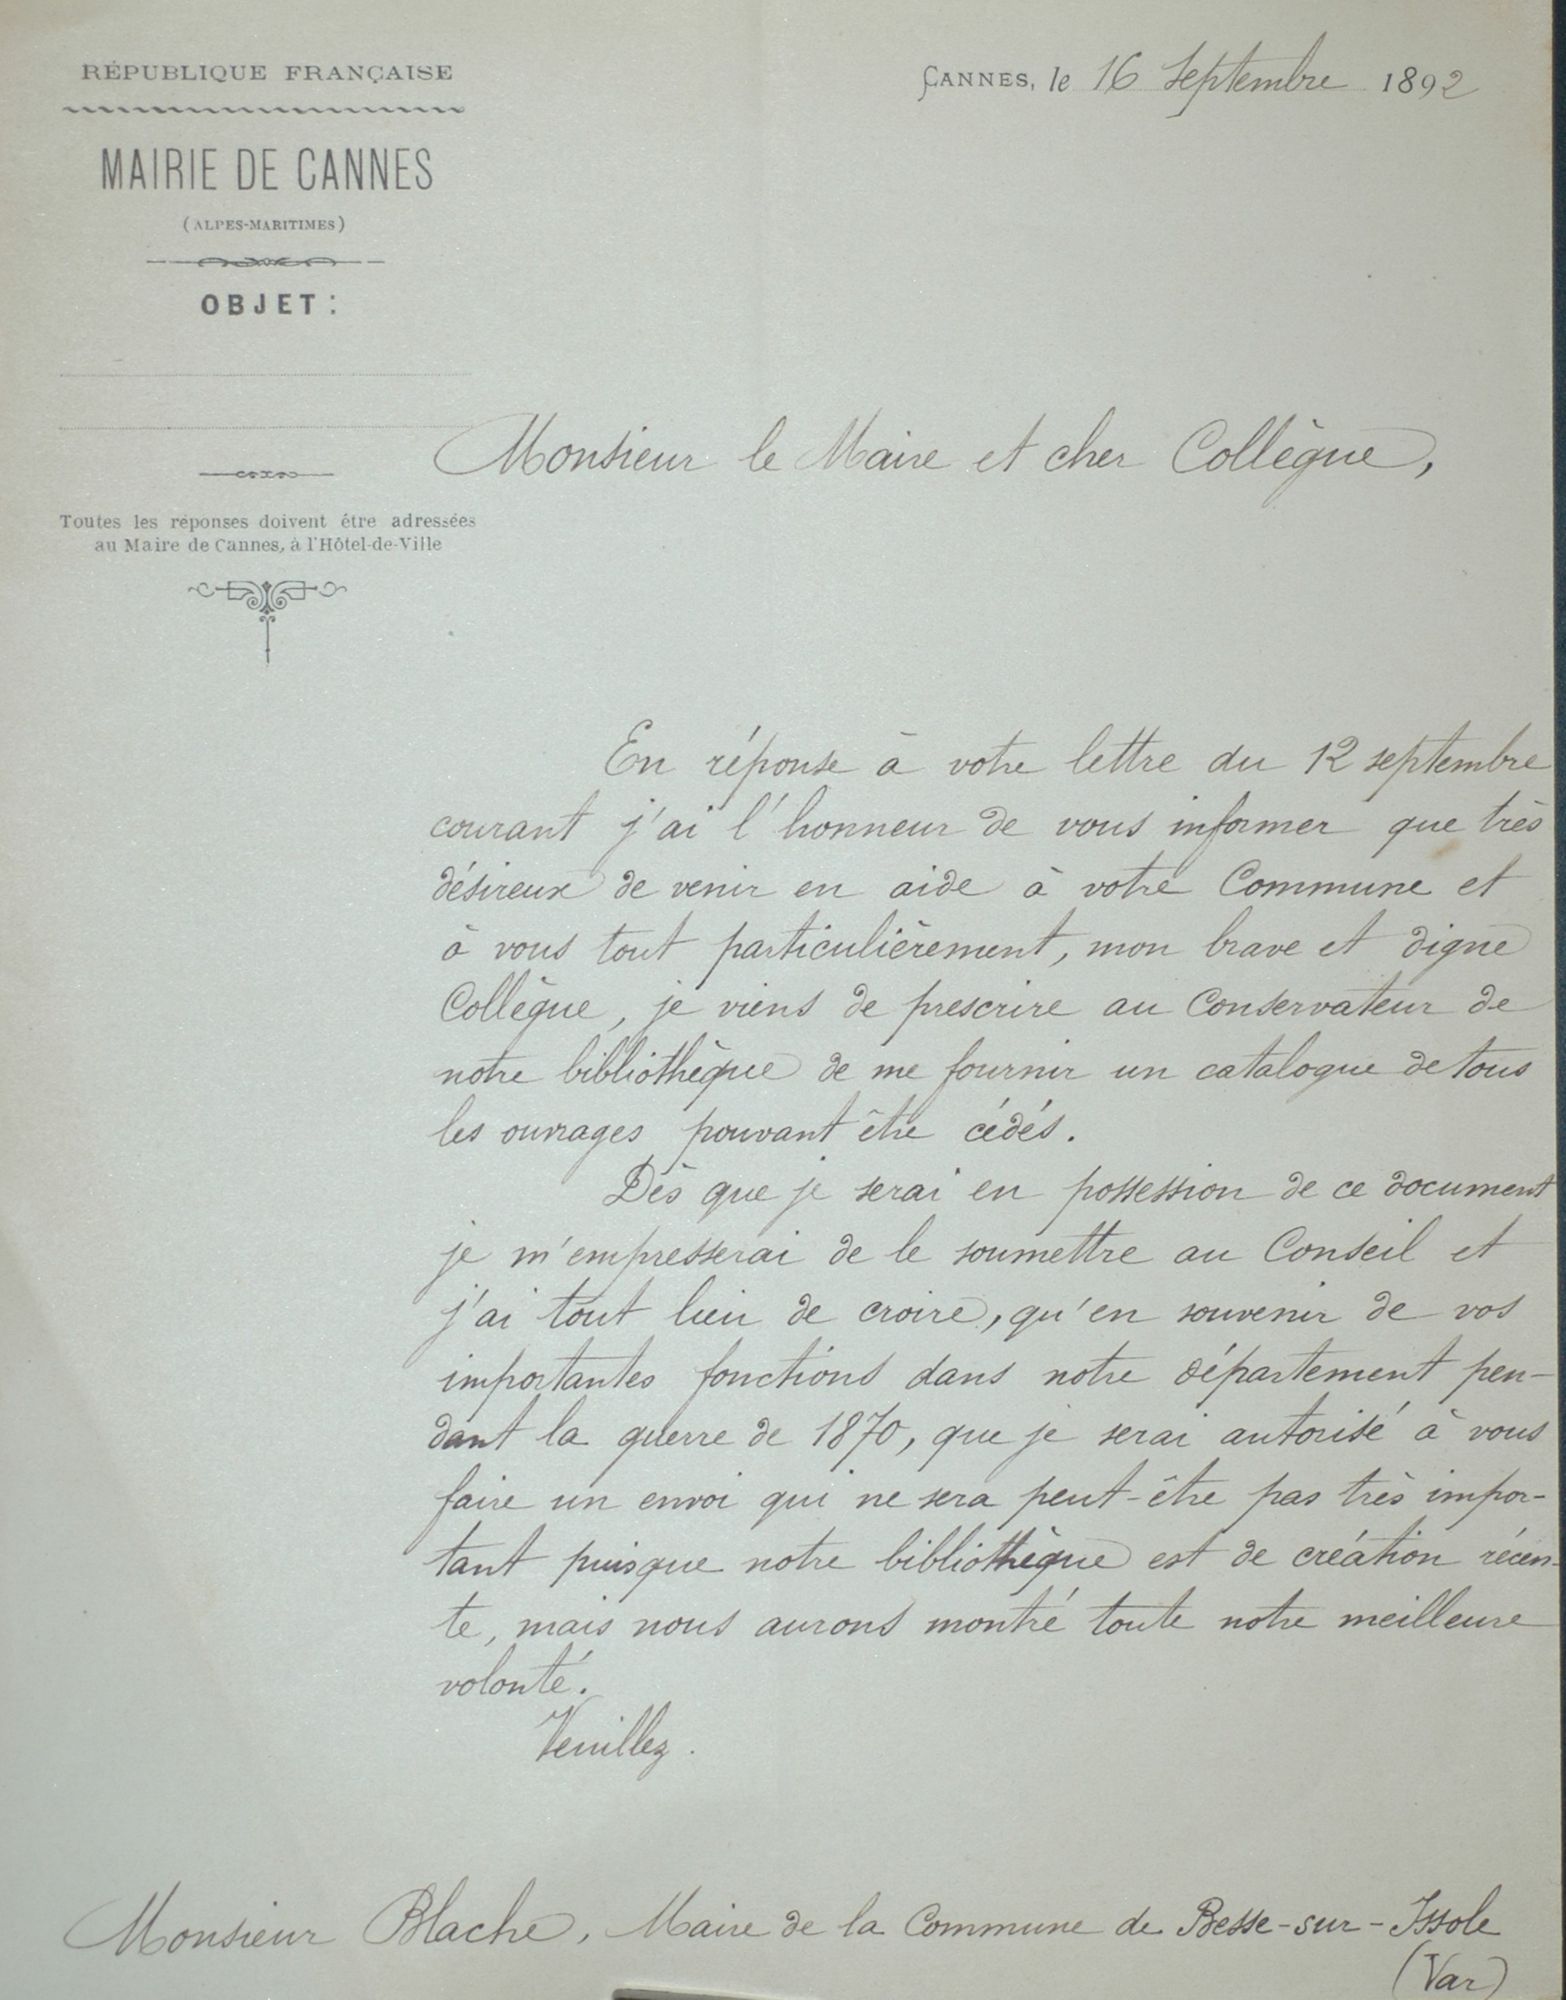 RÉPUBLIQUE FRANÇAISE
MAIRIE DE CANNES
(ALPES-MARITIMES)
OBJET :
Toutes les réponses doivent être adressées
au Maire de Cannes, à l'Hôtel-de-Ville
CANNES, le 16 Septembre 1892
Monsieur le Maire et cher Collègue,
En réponse à votre lettre du 12 septembre
courant j'ai l'honneur de vous informer que très
désireux de venir en aide à votre Commune et
à vous tout particulièrement, mon brave et digne
Collègue, je viens de prescrire au Conservateur de
notre bibliothèque de me fournir un catalogue de tous
les ouvrages pouvant être cédés.
Dès que je serai en possession de ce document
je m'empresserai de le soumettre au Conseil et
j'ai tout lieu de croire, qu'en souvenir de vos
importantes fonctions dans notre département pen-
dant la guerre de 1870, que je serai autorisé à vous
faire un envoi qui ne sera peut-être pas très impor-
tant puisque notre bibliothèque est de création récen-
te, mais nous aurons montré toute notre meilleure
volonté.
Veuillez.
Monsieur Blache, Maire de la Commune de Besse-sur-Issole
(Var)